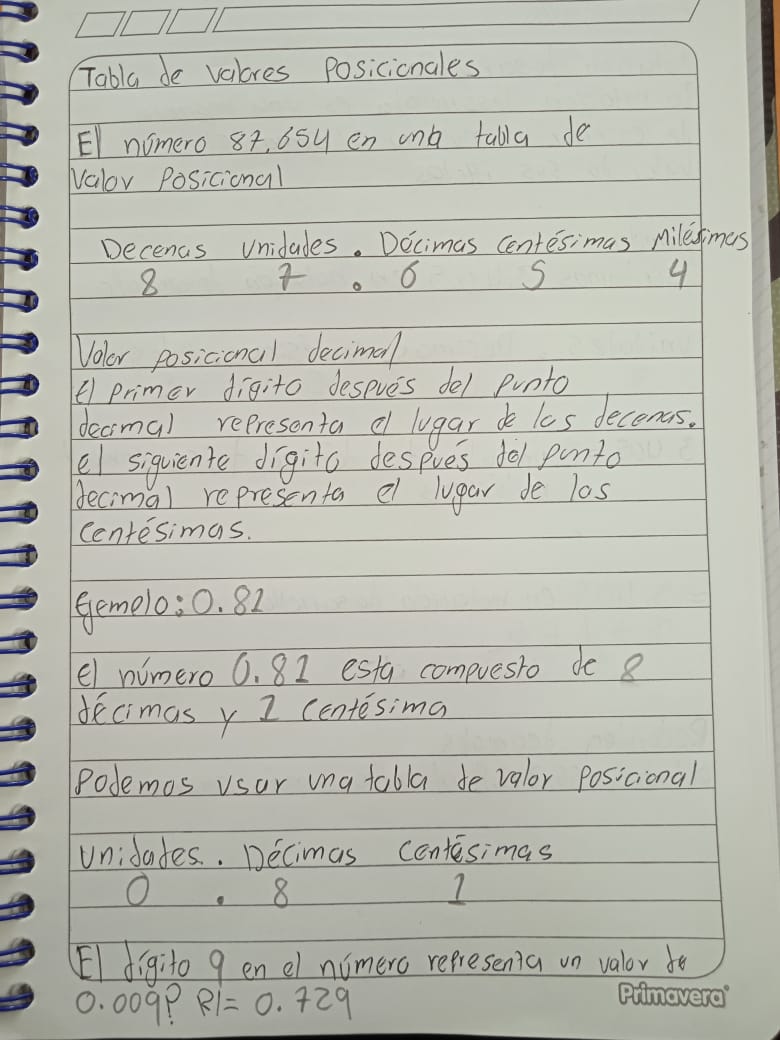 Tabla de valores Posicionales
El número 87.654 en una tabla de
Valor Posicional
Decenas Unidades . Décimas Centésimas Milésimas
8 7 . 6 5 4
Valor posicional decimal
el primer dígito después del punto
decimal representa el lugar de las decenas.
el siguiente dígito después del punto
decimal representa el lugar de los
centésimas.
Ejemplo: 0.81
el número 0.81 esta compuesto de 8
décimas y 1 centésima
Podemos usar una tabla de valor posicional
Unidades . Décimas Centésimas
0 . 8 1
El dígito 9 en el número representa un valor de
0.009? R/= 0.729
Primavera